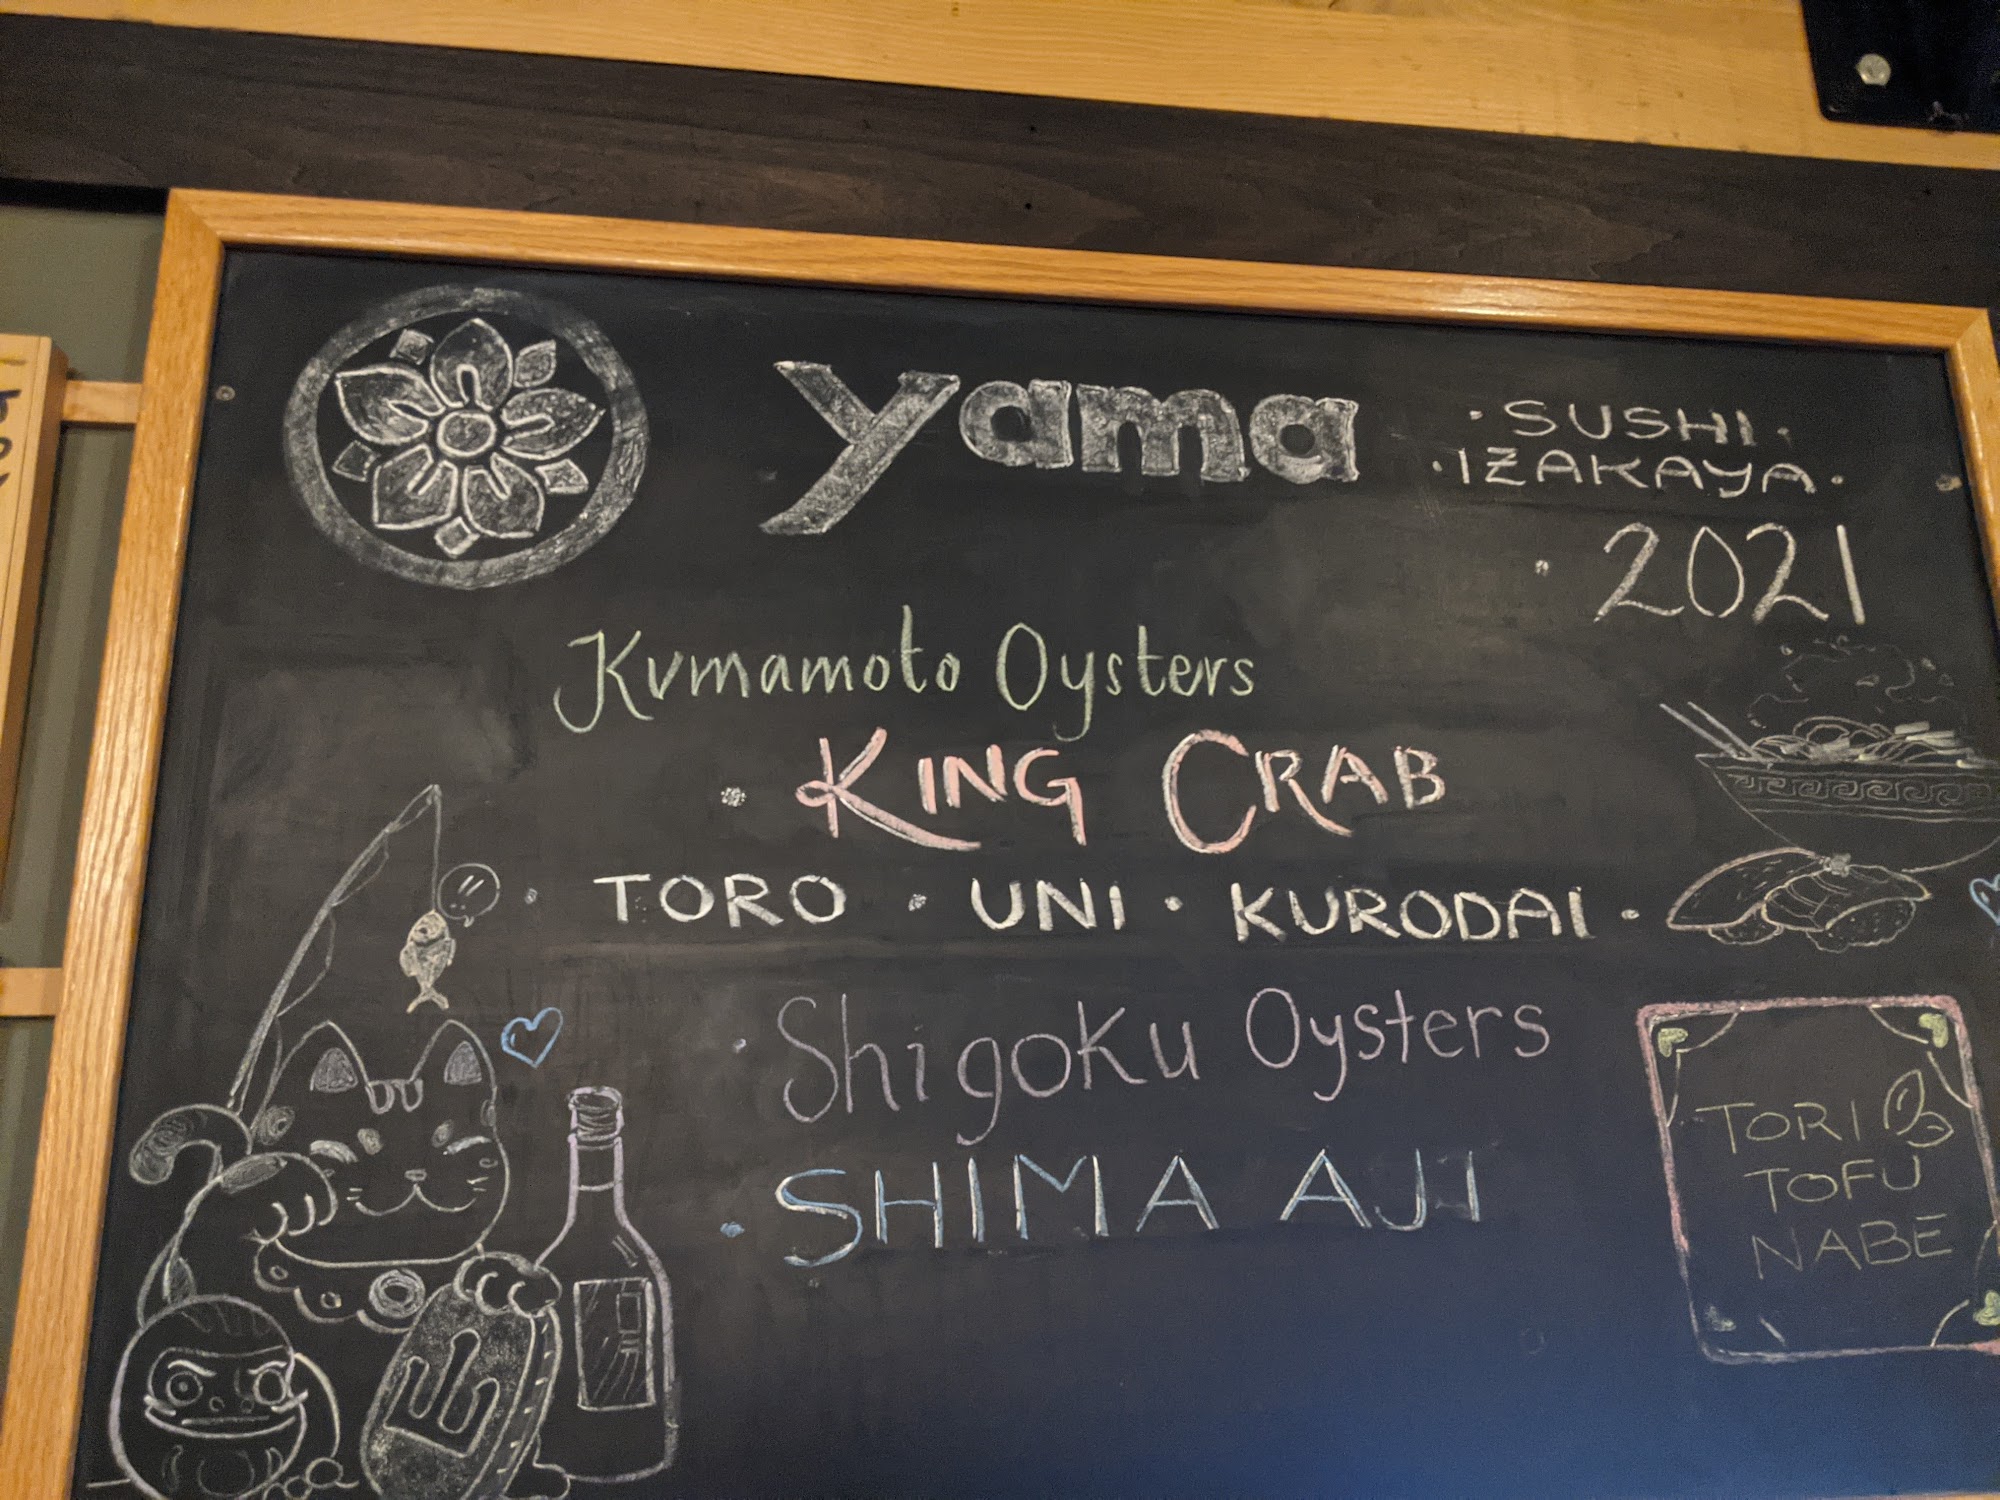 yama
· SUSHI ·
· IZAKAYA ·
· 2021
Kumamoto Oysters
· KING CRAB
· TORO · UNI · KURODAI ·
· Shigoku Oysters
· SHIMA AJI
TORI
TOFU
NABE
山